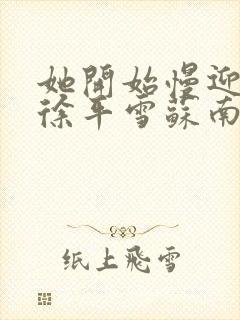 她開始慢迎
徐平雪蘇南
纸上飛雪